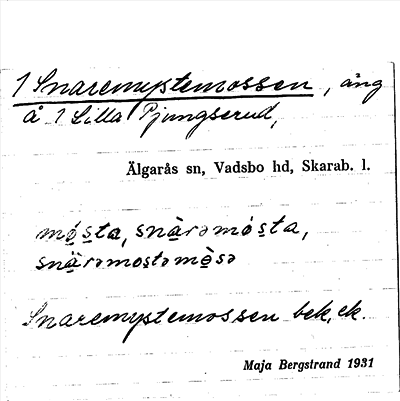 1 Snaremystemossen, äng
å 1 Lilla Pjungserud,
Älgarås sn, Vadsbo hd, Skarab. l.
mø̣s̱ta, snä̀rəmǿs̱ta,
snä̀rəmos̱təmò̱sə
Snaremystemossen bek, ek.
Maja Bergstrand 1931